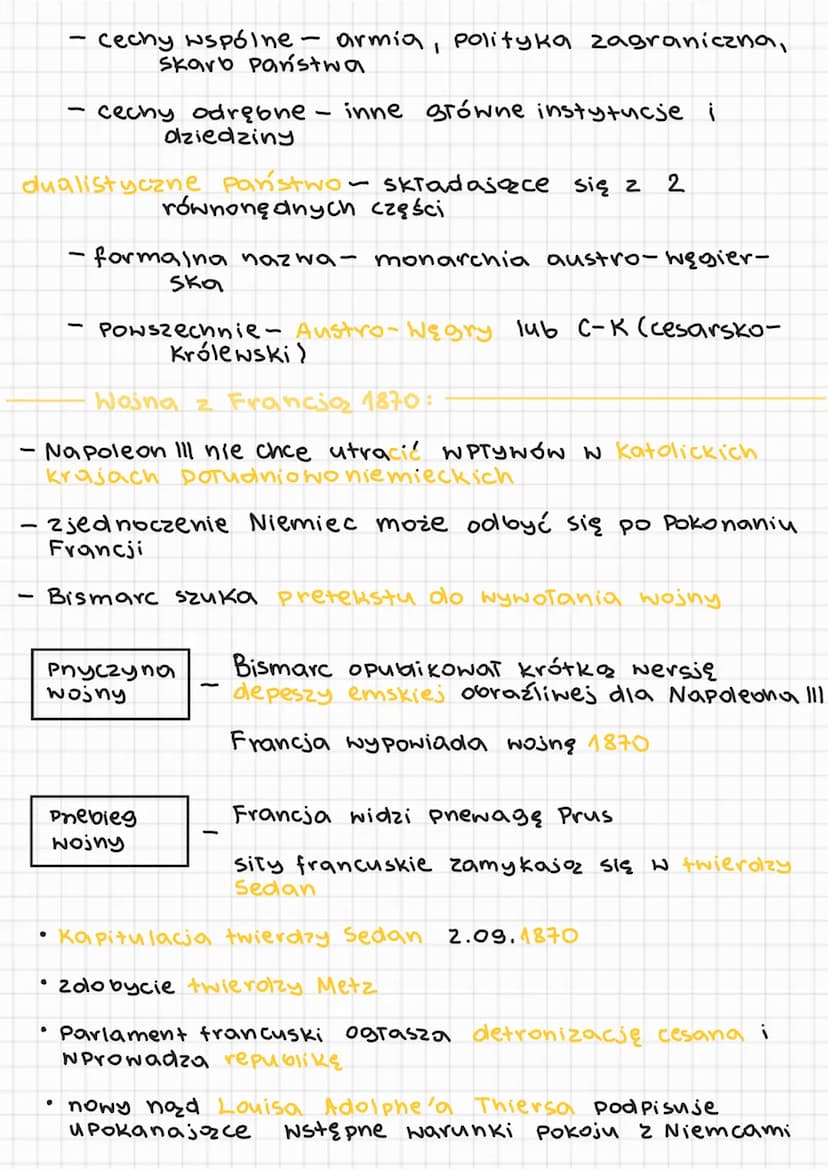 - cechy wspólne - armia, polityka zagraniczna,
skarb państwa
- cechy odrębne - inne główne instytucje i
dziedziny
dualistyczne państwo - składające się z 2
równorzędnych części
- formalna nazwa - monarchia austro-węgier-
ska
- powszechnie - Austro-Węgry lub C-K (cesarsko-
królewski)
Wojna z Francją 1870:
- Napoleon III nie chce utracić wpływów w katolickich
krajach południowoniemieckich
- zjednoczenie Niemiec może odbyć się po pokonaniu
Francji
- Bismarc szuka pretekstu do wywołania wojny
przyczyna
wojny
- Bismarc opublikował krótką wersję
depeszy emskiej obraźliwej dla Napoleona III
Francja wypowiada wojnę 1870
przebieg
wojny
- Francja widzi przewagę Prus
siły francuskie zamykają się w twierdzy
Sedan
• kapitulacja twierdzy Sedan 2.09.1870
• zdobycie twierdzy Metz
• parlament francuski ogłasza detronizację cesarza i
wprowadza republikę
• nowy rząd Louisa Adolphe'a Thiersa podpisuje
upokarzające wstępne warunki pokoju z Niemcami